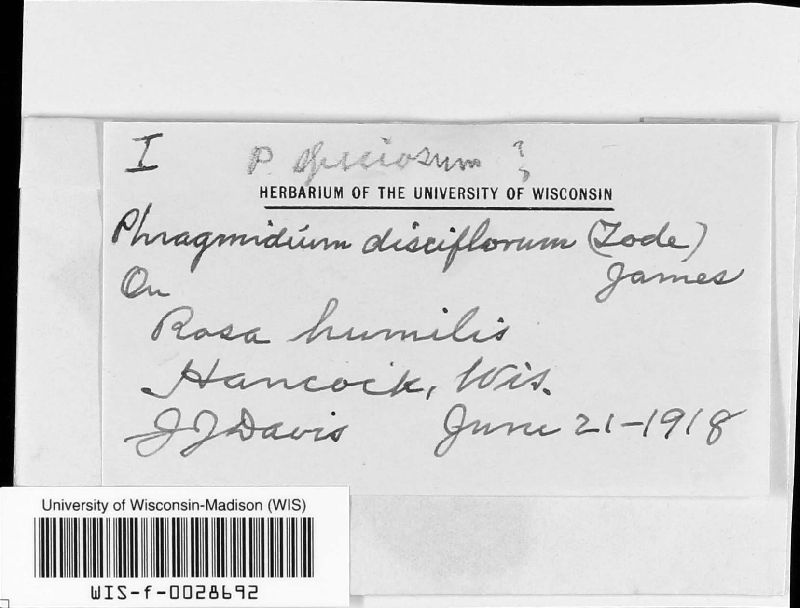 I P. speciosum ?
HERBARIUM OF THE UNIVERSITY OF WISCONSIN
Phragmidium disciflorum (Tode)
James
On
Rosa humilis
Hancock, Wis.
J J Davis June 21-1918
University of Wisconsin-Madison (WIS)
WIS-f-0028692